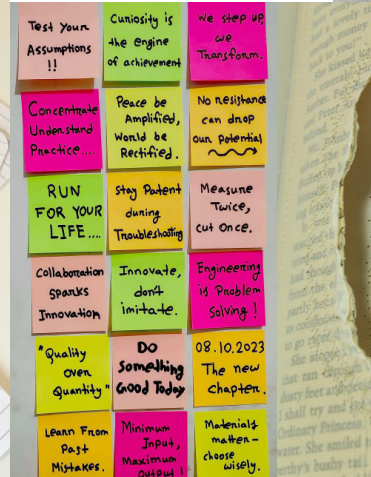 Test Your
Assumptions
!!
Curiosity is
the engine
of achievement
We step up,
we
Transform.
Concentrate
Understand
Practice....
Peace be
Amplified,
World be
Rectified.
No resistance
can drop
our potential
RUN
FOR YOUR
LIFE....
Stay Patent
during
Troubleshooting
Measure
Twice,
cut Once.
Collaboration
sparks
Innovation
Innovate,
don't
imitate.
Engineering
is Problem
Solving!
"Quality
over
Quantity"
Do
Something
Good Today
08.10.2023
The new
Chapter.
Learn From
Past
Mistakes.
Minimum
Input,
Maximum
Output!
Materials
matter-
choose
wisely.
I shall try and
Ordinary Princess.
She smiled